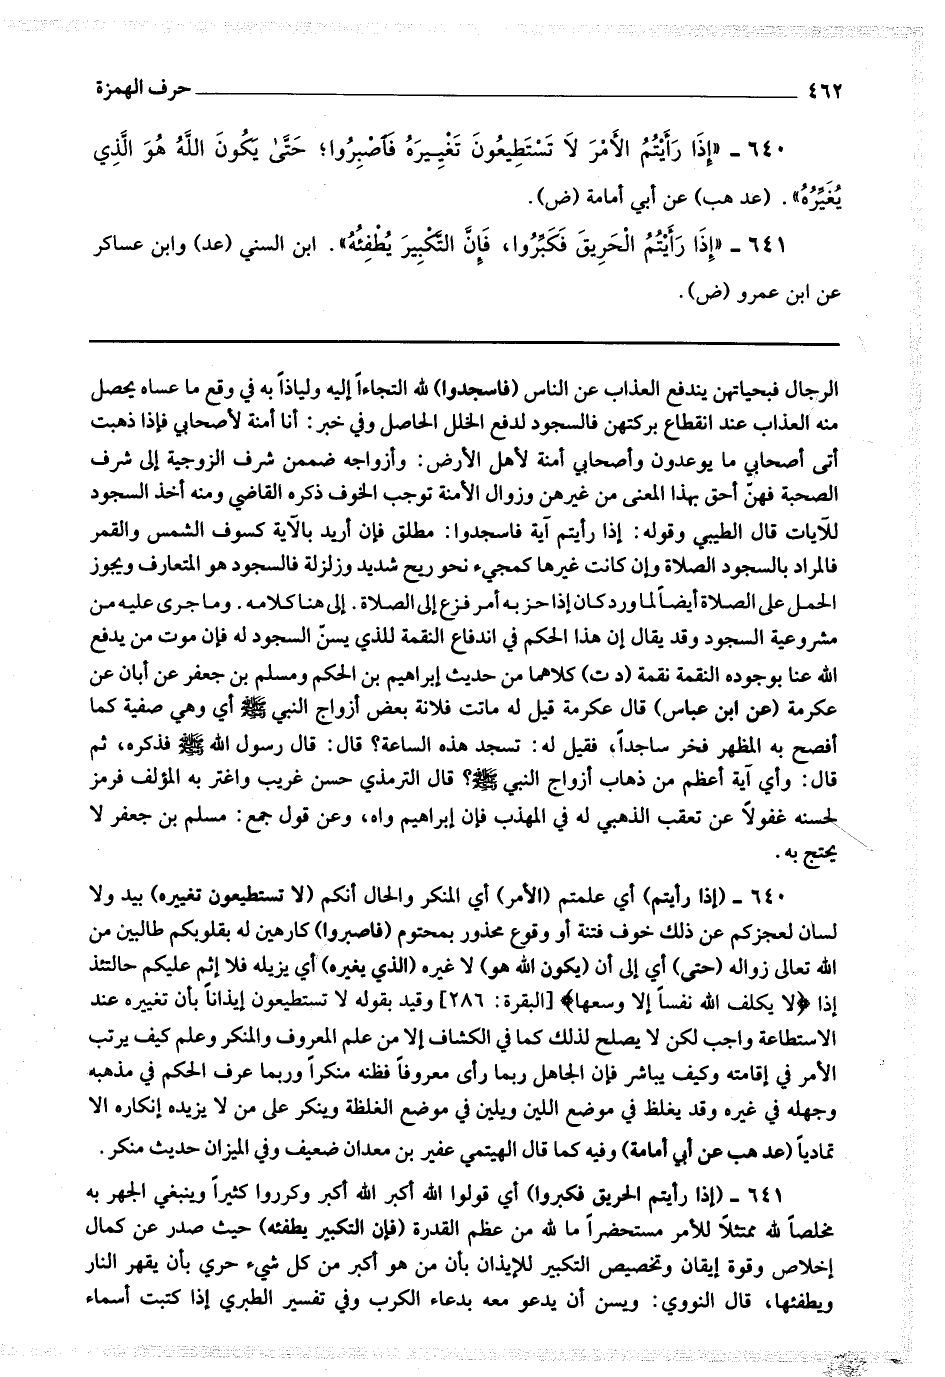 ٤٦٢ حرف الهمزة
٦٤٠ ـ «إِذَا رَأَيْتُمُ الأَمْرَ لاَ تَسْتَطِيعُونَ تَغْيِيرَهُ فَاصْبِرُوا؛ حَتَّىٰ يَكُونَ اللَّهُ هُوَ الَّذِي
يُغَيِّرُهُ». (عد هب) عن أبي أمامة (ض).
٦٤١ ـ «إِذَا رَأَيْتُمُ الْحَرِيقَ فَكَبِّرُوا، فَإِنَّ التَّكْبِيرَ يُطْفِئُهُ». ابن السني (عد) وابن عساكر
عن ابن عمرو (ض).
الرجال فبحياتهن يندفع العذاب عن الناس (فاسجدوا) لله التجاءاً إليه ولياذاً به في وقع ما عساه يحصل
منه العذاب عند انقطاع بركتهن فالسجود لدفع الخلل الحاصل وفي خبر: أنا أمنة لأصحابي فإذا ذهبت
أتى أصحابي ما يوعدون وأصحابي أمنة لأهل الأرض: وأزواجه ضممن شرف الزوجية إلى شرف
الصحبة فهنّ أحق بهذا المعنى من غيرهن وزوال الأمنة توجب الخوف ذكره القاضي ومنه أخذ السجود
للآيات قال الطيبي وقوله: إذا رأيتم آية فاسجدوا: مطلق فإن أريد بالآية كسوف الشمس والقمر
فالمراد بالسجود الصلاة وإن كانت غيرها كمجيء نحو ريح شديد وزلزلة فالسجود هو المتعارف ويجوز
الحمل على الصلاة أيضاً لما ورد كان إذا حزبه أمر فزع إلى الصلاة. إلى هنا كلامه. وما جرى عليه من
مشروعية السجود وقد يقال إن هذا الحكم في اندفاع النقمة للذي يسنّ السجود له فإن موت من يدفع
الله عنا بوجوده النقمة نقمة (د ت) كلاهما من حديث إبراهيم بن الحكم ومسلم بن جعفر عن أبان عن
عكرمة (عن ابن عباس) قال عكرمة قيل له ماتت فلانة بعض أزواج النبي ﷺ أي وهي صفية كما
أفصح به المظهر فخر ساجداً، فقيل له: تسجد هذه الساعة؟ قال: قال رسول الله ﷺ فذكره، ثم
قال: وأي آية أعظم من ذهاب أزواج النبي ﷺ؟ قال الترمذي حسن غريب واغتر به المؤلف فرمز
لحسنه غفولاً عن تعقب الذهبي له في المهذب فإن إبراهيم واه، وعن قول جمع: مسلم بن جعفر لا
يحتج به.
٦٤٠ ـ (إذا رأيتم) أي علمتم (الأمر) أي المنكر والحال أنكم (لا تستطيعون تغييره) بيد ولا
لسان لعجزكم عن ذلك خوف فتنة أو وقوع محذور بمحتوم (فاصبروا) كارهين له بقلوبكم طالبين من
الله تعالى زواله (حتى) أي إلى أن (يكون الله هو) لا غيره (الذي يغيره) أي يزيله فلا إثم عليكم حالتئذ
إذا ﴿لا يكلف الله نفساً إلا وسعها﴾ [البقرة: ٢٨٦] وقيد بقوله لا تستطيعون إيذاناً بأن تغييره عند
الاستطاعة واجب لكن لا يصلح لذلك كما في الكشاف إلا من علم المعروف والمنكر وعلم كيف يرتب
الأمر في إقامته وكيف يباشر فإن الجاهل ربما رأى معروفاً فظنه منكراً وربما عرف الحكم في مذهبه
وجهله في غيره وقد يغلظ في موضع اللين ويلين في موضع الغلظة وينكر على من لا يزيده إنكاره الا
تمادياً (عد هب عن أبي أمامة) وفيه كما قال الهيتمي عفير بن معدان ضعيف وفي الميزان حديث منكر.
٦٤١ ـ (إذا رأيتم الحريق فكبروا) أي قولوا الله أكبر الله أكبر وكرروا كثيراً وينبغي الجهر به
مخلصاً لله ممتثلاً للأمر مستحضراً ما لله من عظم القدرة (فإن التكبير يطفئه) حيث صدر عن كمال
إخلاص وقوة إيقان وتخصيص التكبير للإيذان بأن من هو أكبر من كل شيء حري بأن يقهر النار
ويطفئها، قال النووي: ويسن أن يدعو معه بدعاء الكرب وفي تفسير الطبري إذا كتبت أسماء